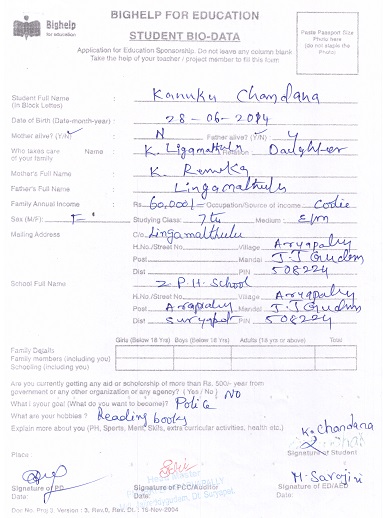 Bighelp
for education
BIGHELP FOR EDUCATION
STUDENT BIO-DATA
Application for Education Sponsorship. Do not leave any column blank
Take the help of your teacher / project member to fill this form
Paste Passport Size
Photo here
(do not staple the
Photo)
Student Full Name : Kanuku Chandana
(in Block Letters)
Date of Birth (Date-month-year) : 28-06-2014
Mother alive? (Y/N) N Father alive? (Y/N) Y
Who takes care Name : K. Ligamathulu Relation Daughter
of your family
Mother's Full Name : K. Renuka
Father's Full Name : Lingamathulu
Family Annual Income : Rs. 60,000/- Occupation/Source of income Codie
Sex (M/F): F Studying Class: 7th Medium: E/m
Mailing Address C/o. Lingamathulu
H.No./Street No. Village Aryapaluy
Post Mandal J.J Gudem
Dist PIN 508224
School Full Name : Z.P.H. School
H.No./Street No. Village Aryapaluy
Post Arapaluy Mandal J.J Gudem
Dist Suryapet PIN 508224
Girls (Below 18 Yrs) Boys (Below 18 Yrs) Adults (18 yrs or above) Total
Family Details
Family members (including you)
Schooling (including you)
Are you currently getting any aid or scholorship of more than Rs. 500/- year from
government or any other organization or any agency? (Yes / No) NO
What is your goal (What do you want to become)? Police
What are your hobbies? Reading books
Explain more about you (PH, Sports, Merit, Skills, extra curricular activities, health etc.)
K. Chandana
Place
Signature of Student
M. Sarojini
Signature of PD Signature of PCC/Auditor Signature of ED/AED
Date: Date: Date:
Doc No: Proj 3, Version : 3, Rev.0, Rev. Dt. : 15-Nov-2004